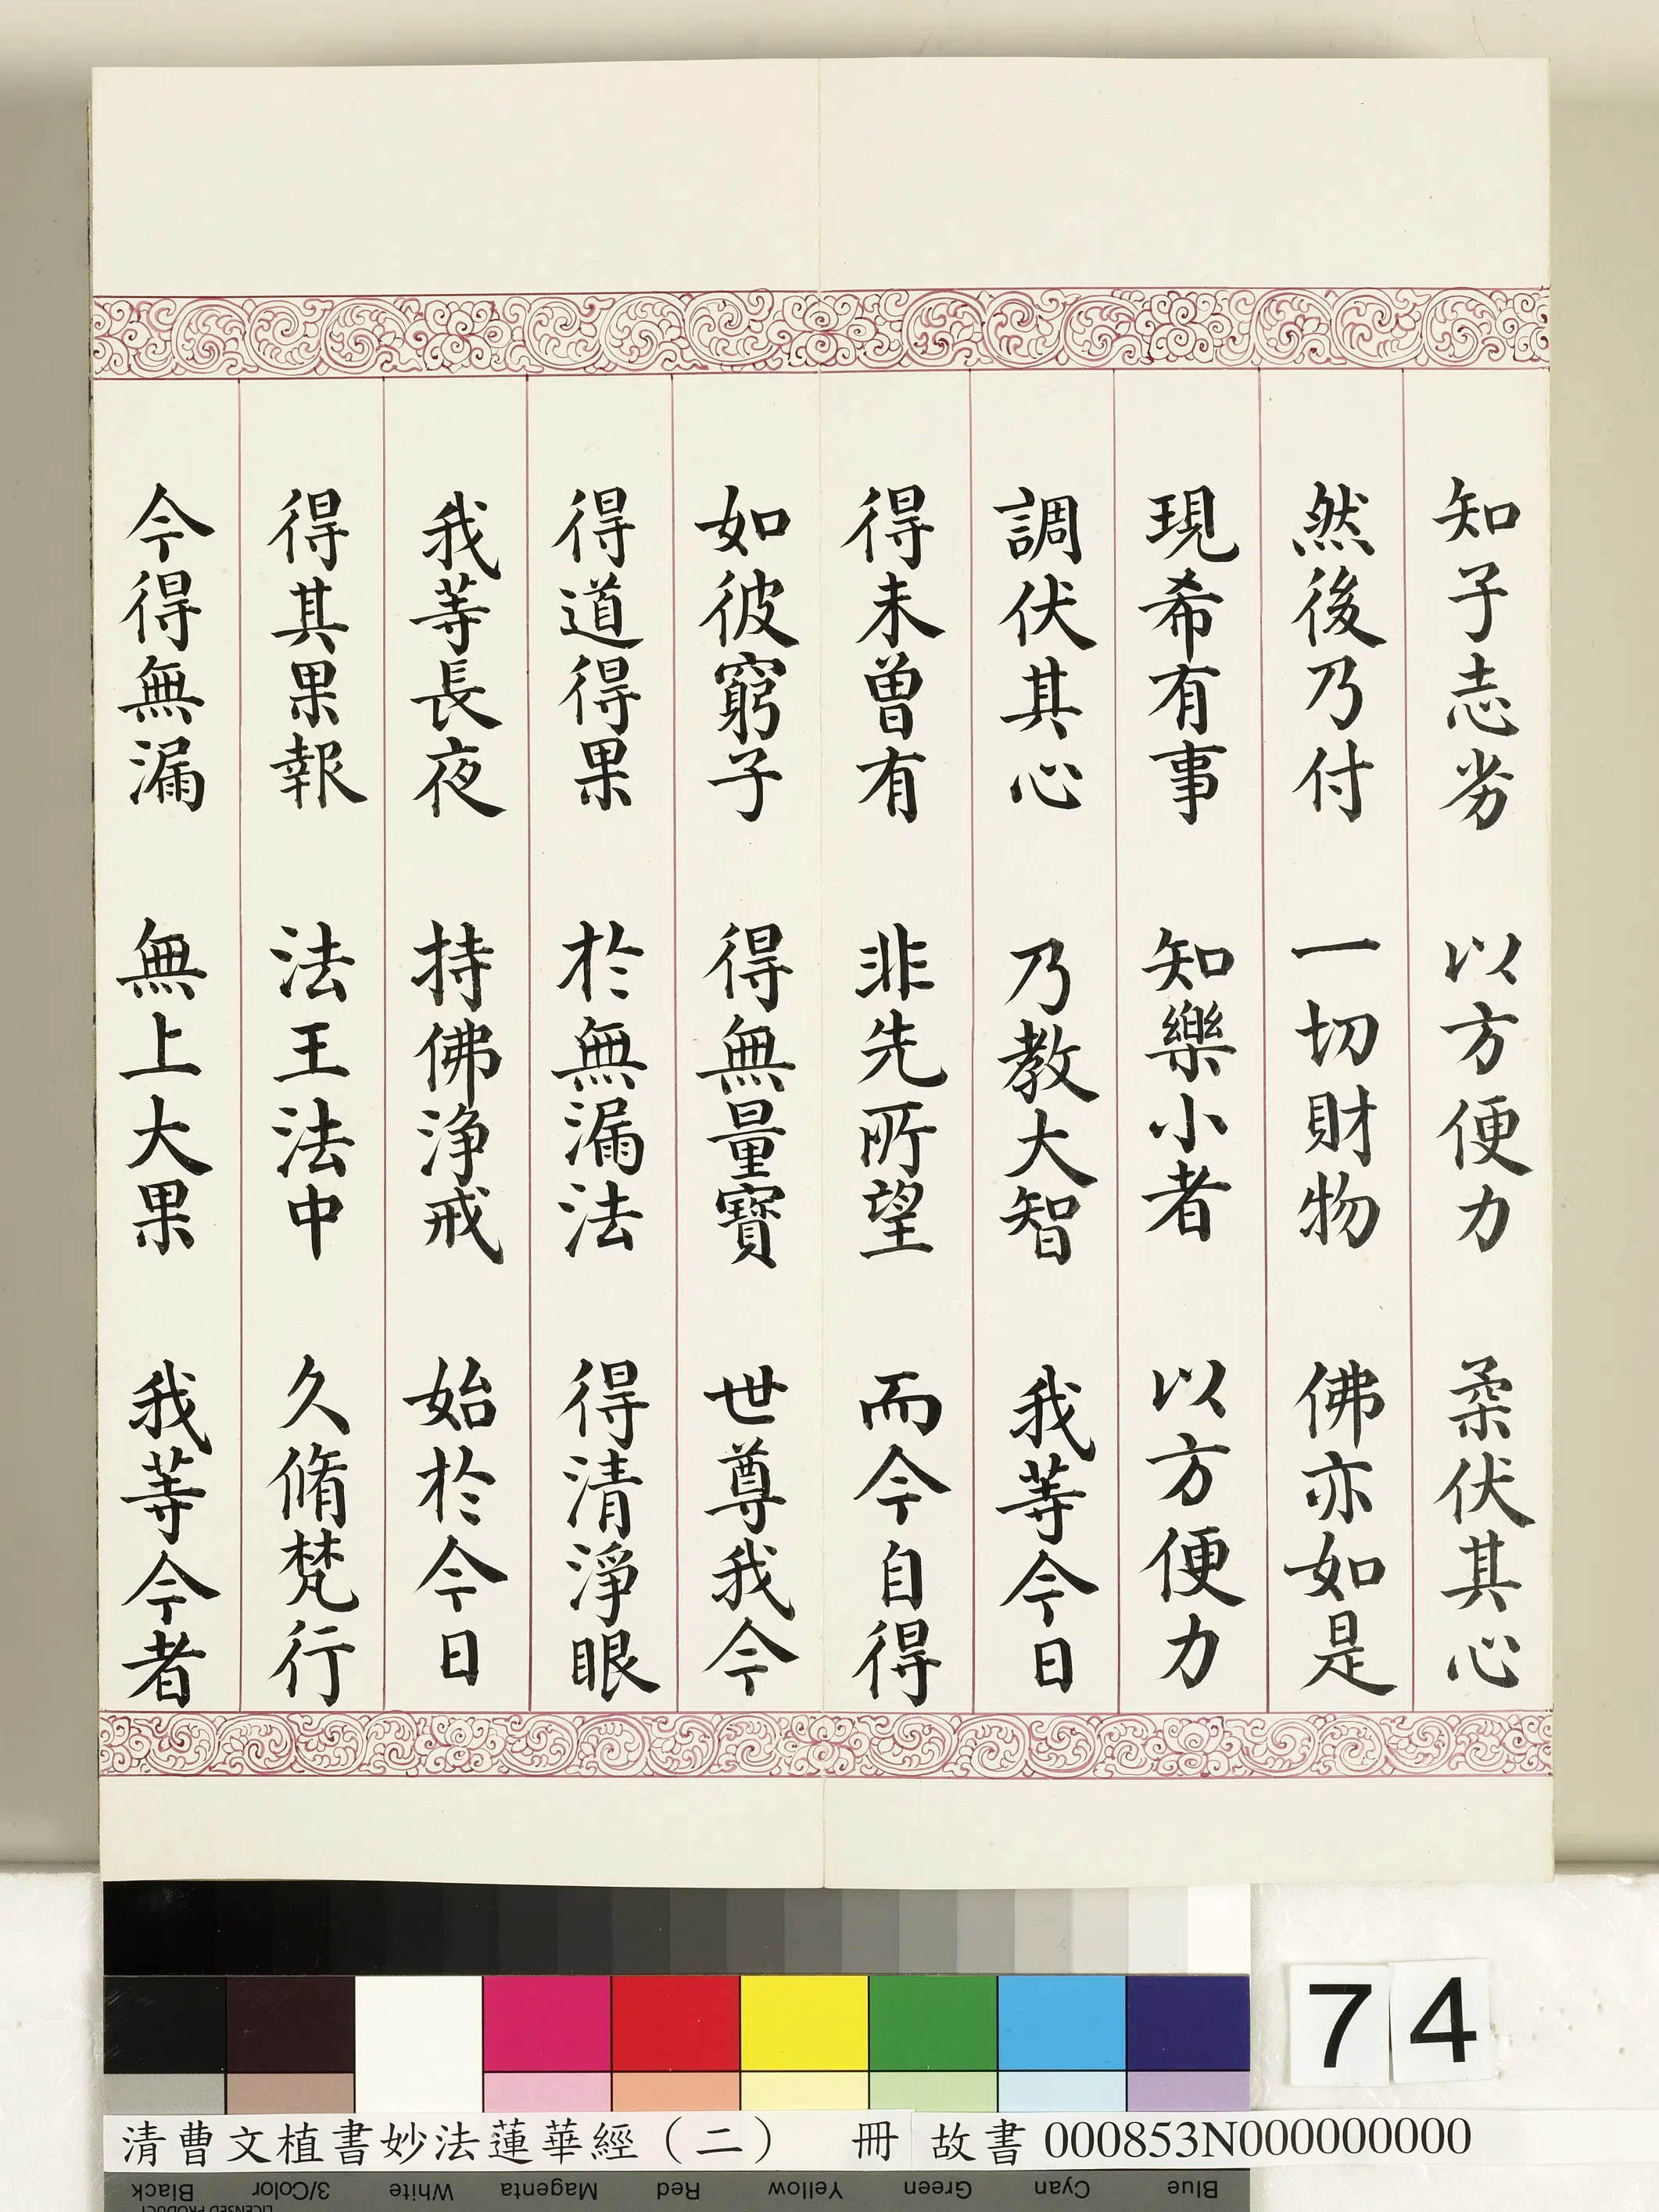 知子志劣　以方便力　柔伏其心
然後乃付　一切財物　佛亦如是
現希有事　知樂小者　以方便力
調伏其心　乃教大智　我等今日
得未曾有　非先所望　而今自得
如彼窮子　得無量寶　世尊我今
得道得果　於無漏法　得清淨眼
我等長夜　持佛淨戒　始於今日
得其果報　法王法中　久脩梵行
今得無漏　無上大果　我等今者
74
清曹文植書妙法蓮華經（二）　冊　故書 000853N000000000
Black 3/Color White Magenta Red Yellow Green Cyan Blue
LICENSED PRODUCT